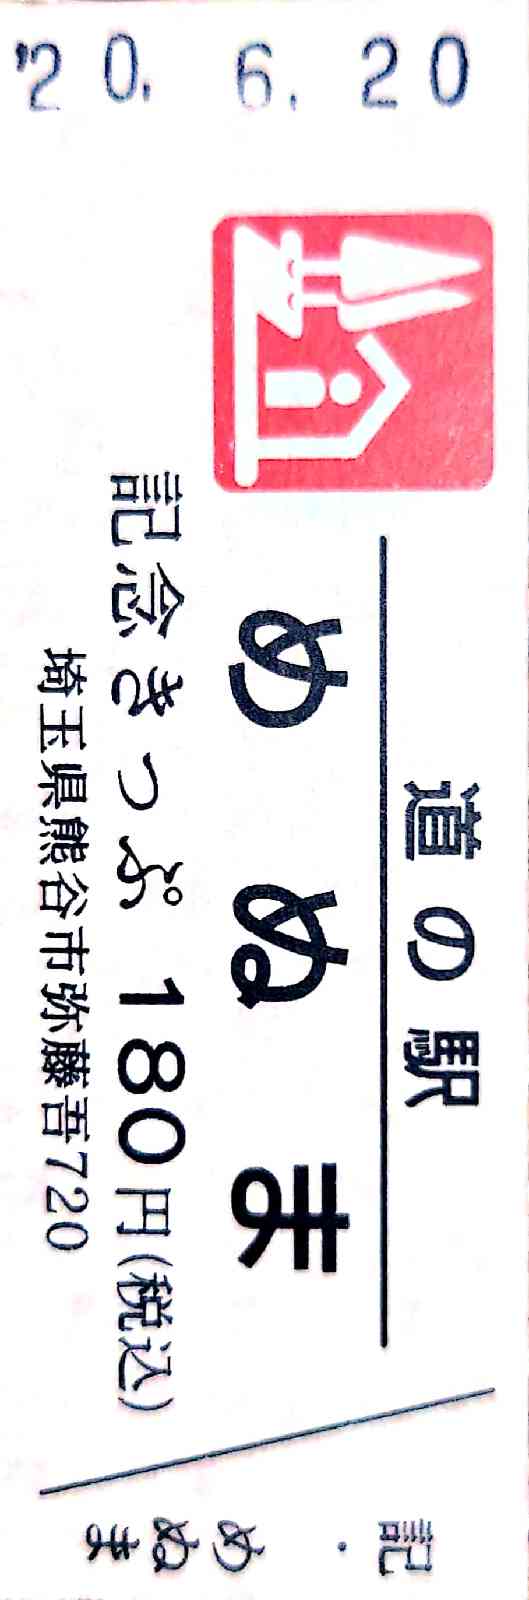 '20. 6. 20
道の駅
めぬま
記念きっぷ 180円(税込)
埼玉県熊谷市弥藤吾720
記・めぬま